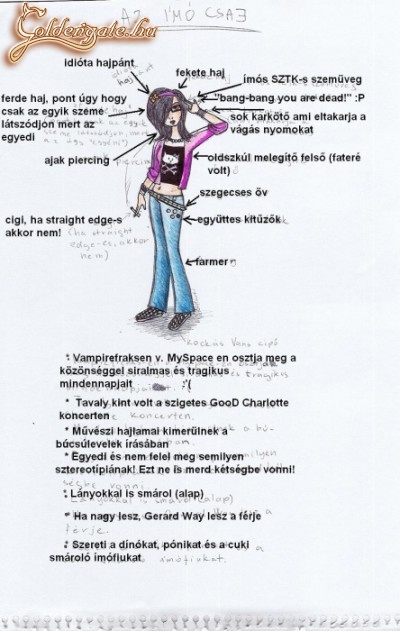 AZ IMÓ CSAJ
Goldengate.hu
idióta hajpánt
fekete haj
imós SZTK-s szemüveg
ferde haj, pont úgy hogy
csak az egyik szeme
látszódjon mert az
egyedi
"bang-bang you are dead!" :P
sok karkötő ami eltakarja a
vágás nyomokat
ajak piercing
oldszkúl melegítő felső (fateré
volt)
szegecses öv
cigi, ha straight edge-s
akkor nem!
(ha straight
edge-es, akkor
nem)
együttes kitűzők
farmer
kockás Vans cipő
* Vampirefraksen v. MySpace en osztja meg a
közönséggel siralmas és tragikus
mindennapjait :'(
* Tavaly kint volt a szigetes GooD Charlotte
koncerten
* Művészi hajlamai kimerülnek a
búcsúlevelek írásában
* Egyedi és nem felel meg semilyen
sztereotípiának! Ezt ne is merd kétségbe vonni!
* Lányokkal is smárol (alap)
* Ha nagy lesz, Gerard Way lesz a férje
* Szereti a dínókat, pónikat és a cuki
smároló imófiukat